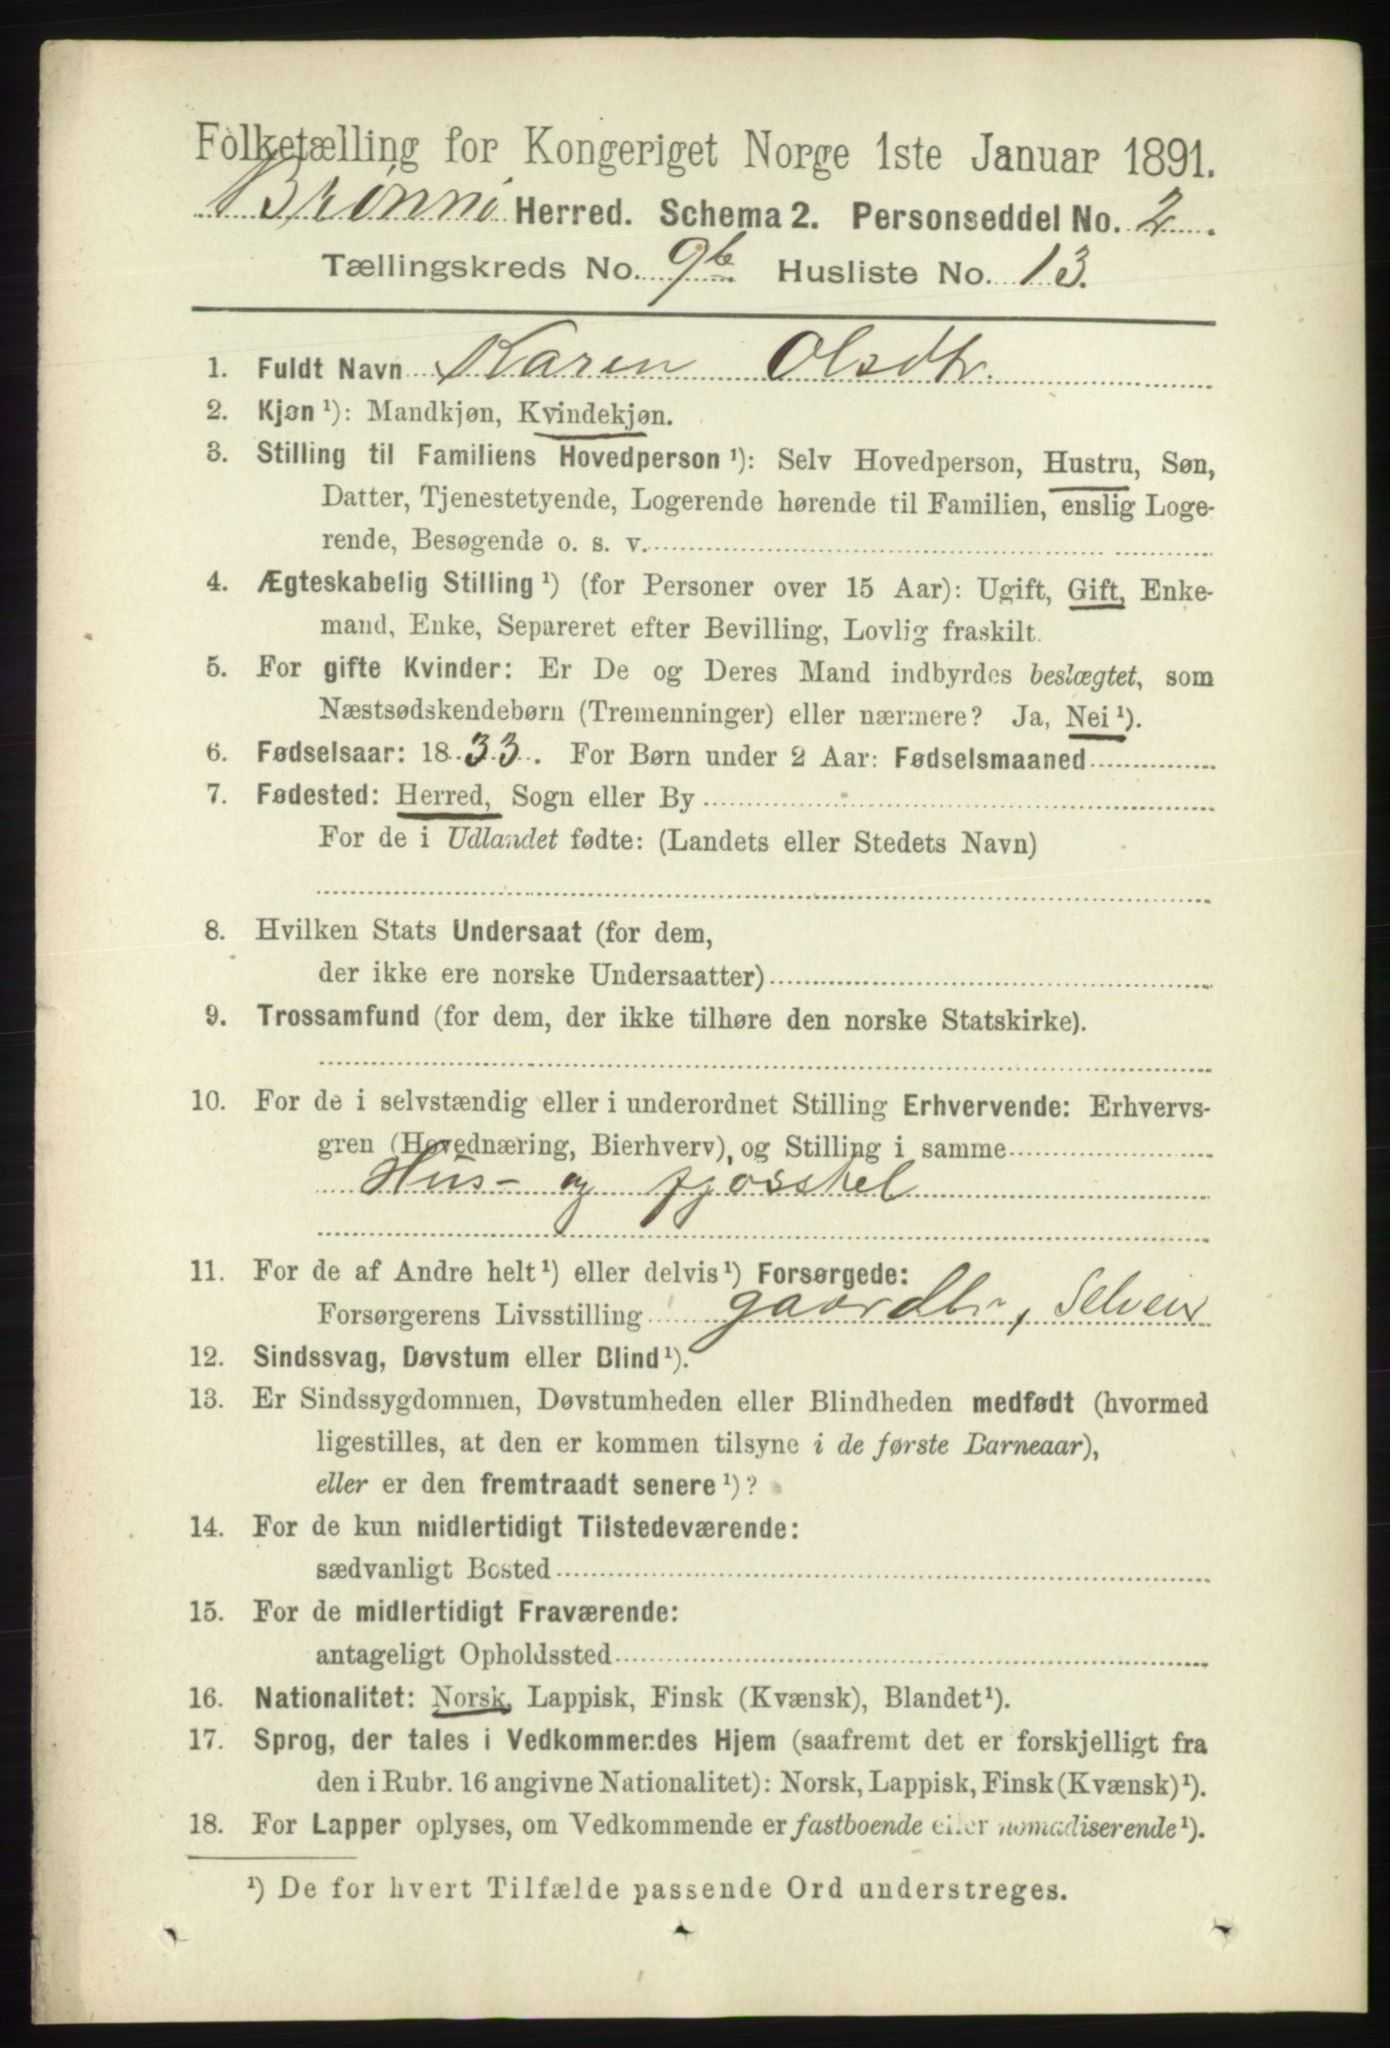 Folketælling for Kongeriget Norge 1ste Januar 1891.
Brønnø Herred. Schema 2. Personseddel No. 2.
Tællingskreds No. 9b. Husliste No. 13.
1. Fuldt Navn Karen Olsdtr.
2. Kjøn ¹): Mandkjøn, Kvindekjøn.
3. Stilling til Familiens Hovedperson ¹): Selv Hovedperson, Hustru, Søn,
Datter, Tjenestetyende, Logerende hørende til Familien, enslig Loge-
rende, Besøgende o. s. v.
4. Ægteskabelig Stilling ¹) (for Personer over 15 Aar): Ugift, Gift, Enke-
mand, Enke, Separeret efter Bevilling, Lovlig fraskilt.
5. For gifte Kvinder: Er De og Deres Mand indbyrdes beslægtet, som
Næstsødskendebørn (Tremenninger) eller nærmere? Ja, Nei ¹).
6. Fødselsaar: 1833. For Børn under 2 Aar: Fødselsmaaned
7. Fødested: Herred, Sogn eller By
For de i Udlandet fødte: (Landets eller Stedets Navn)
8. Hvilken Stats Undersaat (for dem,
der ikke ere norske Undersaatter)
9. Trossamfund (for dem, der ikke tilhøre den norske Statskirke).
10. For de i selvstændig eller i underordnet Stilling Erhvervende: Erhvervs-
gren (Hovednæring, Bierhverv), og Stilling i samme
Hus- og fjosstel
11. For de af Andre helt ¹) eller delvis ¹) Forsørgede:
Forsørgerens Livsstilling gaardbr, Selveier
12. Sindssvag, Døvstum eller Blind ¹).
13. Er Sindssygdommen, Døvstumheden eller Blindheden medfødt (hvormed
ligestilles, at den er kommen tilsyne i de første Barneaar),
eller er den fremtraadt senere ¹)?
14. For de kun midlertidigt Tilstedeværende:
sædvanligt Bosted
15. For de midlertidigt Fraværende:
antageligt Opholdssted
16. Nationalitet: Norsk, Lappisk, Finsk (Kvænsk), Blandet ¹).
17. Sprog, der tales i Vedkommendes Hjem (saafremt det er forskjelligt fra
den i Rubr. 16 angivne Nationalitet): Norsk, Lappisk, Finsk (Kvænsk) ¹).
18. For Lapper oplyses, om Vedkommende er fastboende eller nomadiserende ¹).
¹) De for hvert Tilfælde passende Ord understreges.